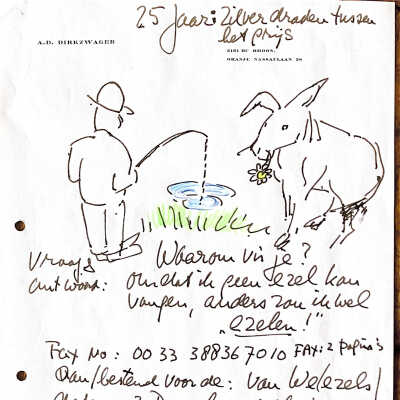 25 Jaar: Zilverdraden tussen
het prijs
A.D. DIRKZWAGER
ORANJE NASSAULAAN 28
Vraag: Waarom vis je?
antwoord: omdat ik geen ezel kan
vangen, anders zou ik wel
"ezelen!"
Fax No: 00 33 388367010 FAX: 2 pagina's
Aan/bestemd voor de: van